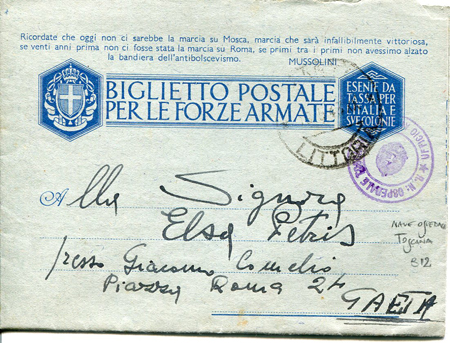 Ricordate che oggi non ci sarebbe la marcia su Mosca, marcia che sarà infallibilmente vittoriosa,
se venti anni prima non ci fosse stata la marcia su Roma, se primi tra i primi non avessimo alzato
la bandiera dell'antibolscevismo. MUSSOLINI
BIGLIETTO POSTALE
PER LE FORZE ARMATE
ESENTE DA
TASSA PER
L'ITALIA E
SUE COLONIE
LITTORIA
UFFICIO
R. N. OSPEDALE
Alla Signora
Elsa Petris
presso Giacomo Comelio
Piazza Roma 24
GAETA
NAVE OSPEDALE
Toscana
312